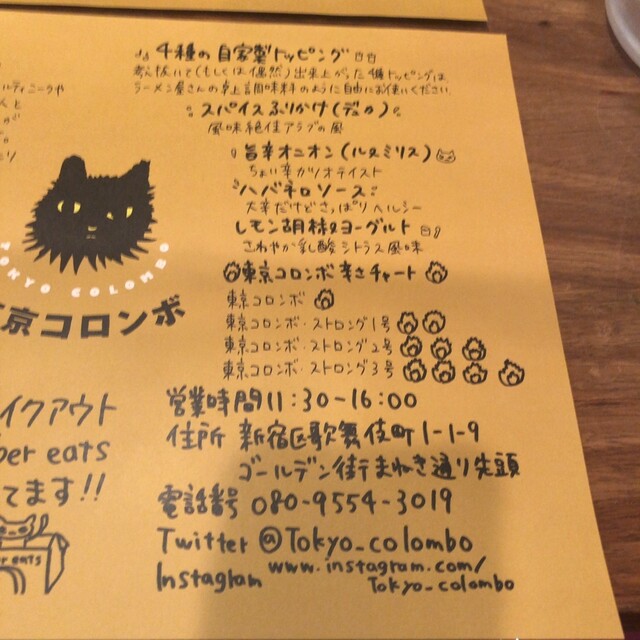 4種の自家製トッピング
考え抜いて(もしくは偶然)出来上がった4種トッピングは
ラーメン屋さんの卓上調味料のように自由にお使いください
スパイスふりかけ(デュカ)
風味絶佳アラブの風
旨辛オニオン(ルヌミリス)
ちょい辛ガツオテイスト
ハバネロソース
大辛だけどさっぱりヘルシー
レモン胡椒ヨーグルト
さわやか乳酸シトラス風味
東京コロンボ辛さチャート
東京コロンボ
東京コロンボ・ストロング1号
東京コロンボ・ストロング2号
東京コロンボ・ストロング3号
TOKYO COLOMBO
京コロンボ
イクアウト
ber eats
てます!!
er eats
営業時間 11:30-16:00
住所 新宿区歌舞伎町1-1-9
ゴールデン街まねき通り先頭
電話番号 080-9554-3019
Twitter @Tokyo_colombo
Instagram www.instagram.com/
Tokyo_colombo